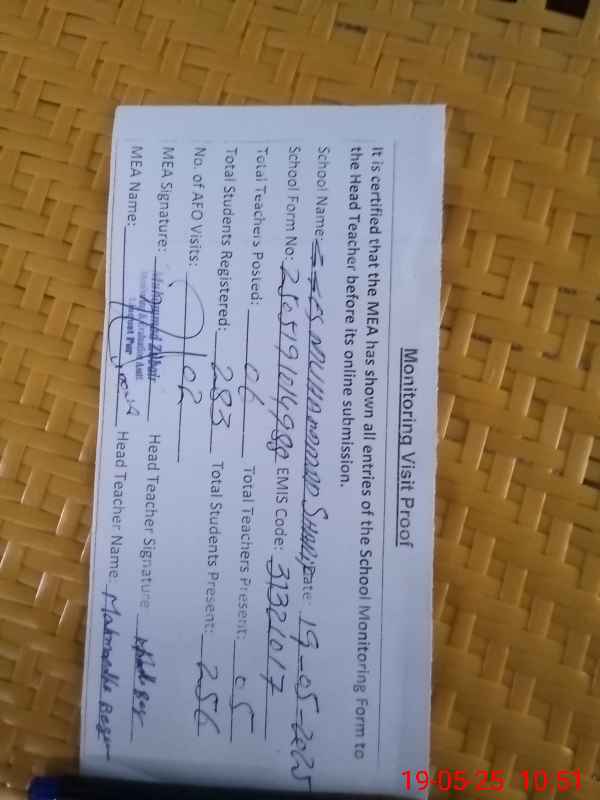 Monitoring Visit Proof
It is certified that the MEA has shown all entries of the School Monitoring Form to
the Head Teacher before its online submission.
School Name: MUHAMMAD SHARIF Date: 19-05-2025
School Form No: EMIS Code: 31321017
Total Teachers Posted: 06 Total Teachers Present: 05
Total Students Registered: 283 Total Students Present: 256
No. of AFO Visits: 02
MEA Signature: Head Teacher Signature:
MEA Name: Muhammad Zubair Head Teacher Name:
19-05-25 10:51